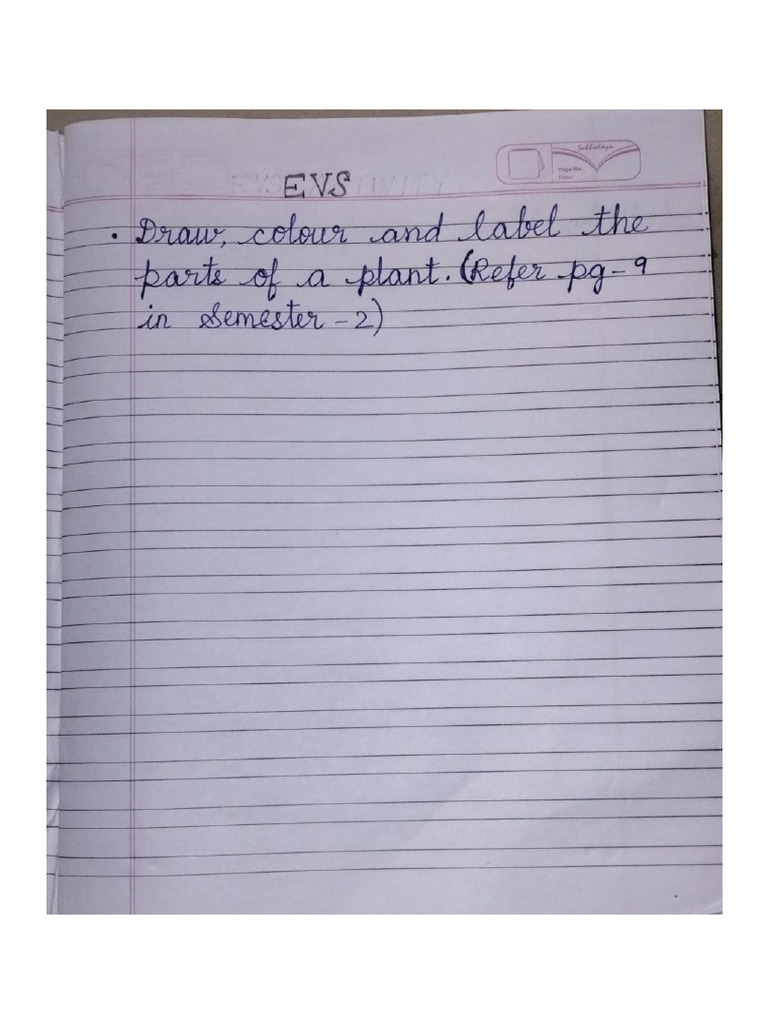 Page No.
Date:
EVS
• Draw, colour and label the
parts of a plant. (Refer pg-9
in Semester-2)